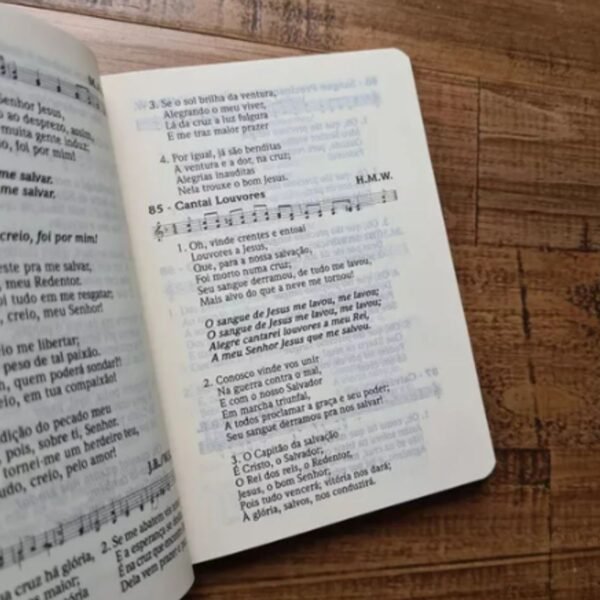 Senhor Jesus,
ao desprezo, assim,
muita gente induz;
o, foi por mim!
me salvar.
me salvar.
creio, foi por mim!
este pra me salvar,
, meu Redentor.
i tudo em me resgatar;
, creio, meu Senhor!
o me libertar;
peso de tal paixão.
h, quem poderá sondar?!
, em tua compaixão!
dição do pecado meu
pois, sobre ti, Senhor.
tornei-me um herdeiro teu,
udo, creio, pelo amor!
na cruz há glória,
maior;
glória
2. Se me abatem
E a esperança se
É na cruz que
Dela vem prazer e
3. Se o sol brilha da ventura,
Alegrando o meu viver,
Lá da cruz a luz fulgura
E me traz maior prazer
4. Por igual, já são benditas
A ventura e a dor, na cruz;
Alegrias inauditas
Nela trouxe o bom Jesus.
85 - Cantai Louvores H.M.W.
1. Oh, vinde crentes e entoai
Louvores a Jesus,
Que, para a nossa salvação,
Foi morto numa cruz;
Seu sangue derramou, de tudo me lavou,
Mais alvo do que a neve me tornou!
O sangue de Jesus me lavou, me lavou;
O sangue de Jesus me lavou, me lavou;
Alegre cantarei louvores a meu Rei,
A meu Senhor Jesus que me salvou.
2. Conosco vinde vos unir
Na guerra contra o mal,
E com o nosso Salvador
Em marcha triunfal,
A todos proclamar a graça e seu poder;
Seu sangue derramou pra nos salvar!
3. O Capitão da salvação
É Cristo, o Salvador;
O Rei dos reis, o Redentor,
Jesus, o bom Senhor;
Pois tudo vencerá; vitória nos dará;
À glória, salvos, nos conduzirá.